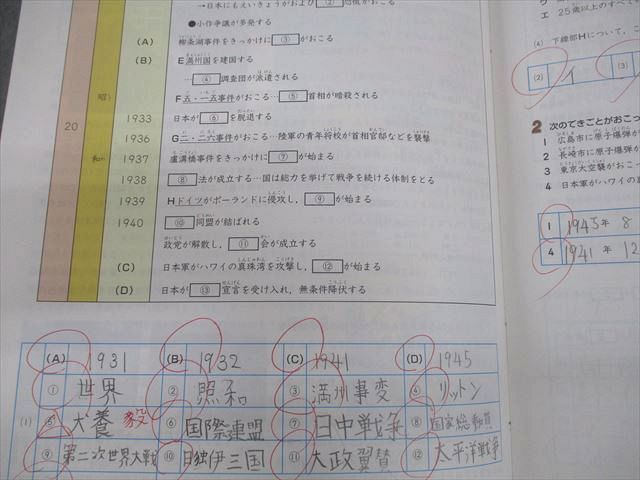 →日本にもえいきょうがおよび② 恐慌がおこる
●小作争議が多発する
(A) 柳条湖事件をきっかけに③がおこる
(B) E満州国を建国する
…④調査団が派遣される
F五・一五事件がおこる…⑤首相が暗殺される
昭和
20
1933 日本が⑥を脱退する
1936 G二・二六事件がおこる…陸軍の青年将校が首相官邸などを襲撃
1937 盧溝橋事件をきっかけに⑦が始まる
1938 ⑧法が成立する…国は総力を挙げて戦争を続ける体制をとる
1939 Hドイツがポーランドに侵攻し,⑨が始まる
1940 ⑩同盟が結ばれる
政党が解散し,⑪会が成立する
(C) 日本軍がハワイの真珠湾を攻撃し,⑫が始まる
(D) 日本が⑬宣言を受け入れ,無条件降伏する
(A) 1931 (B) 1932 (C) 1941 (D) 1945
(1)
① 世界 ② 昭和 ③ 満州事変 ④ リットン
⑤ 犬養 毅 ⑥ 国際連盟 ⑦ 日中戦争 ⑧ 国家総動員
⑨ 第二次世界大戦 ⑩ 日独伊三国 ⑪ 大政翼賛 ⑫ 太平洋戦争
エ 25歳以上のすべ
(4) 下線部Hについて,こ
(2) イ (3)
2 次のできごとがおこっ
1 広島市に原子爆弾が
2 長崎市に原子爆弾が
3 東京大空襲がおこ
4 日本軍がハワイの真
1 1945年 8
4 1941年 12